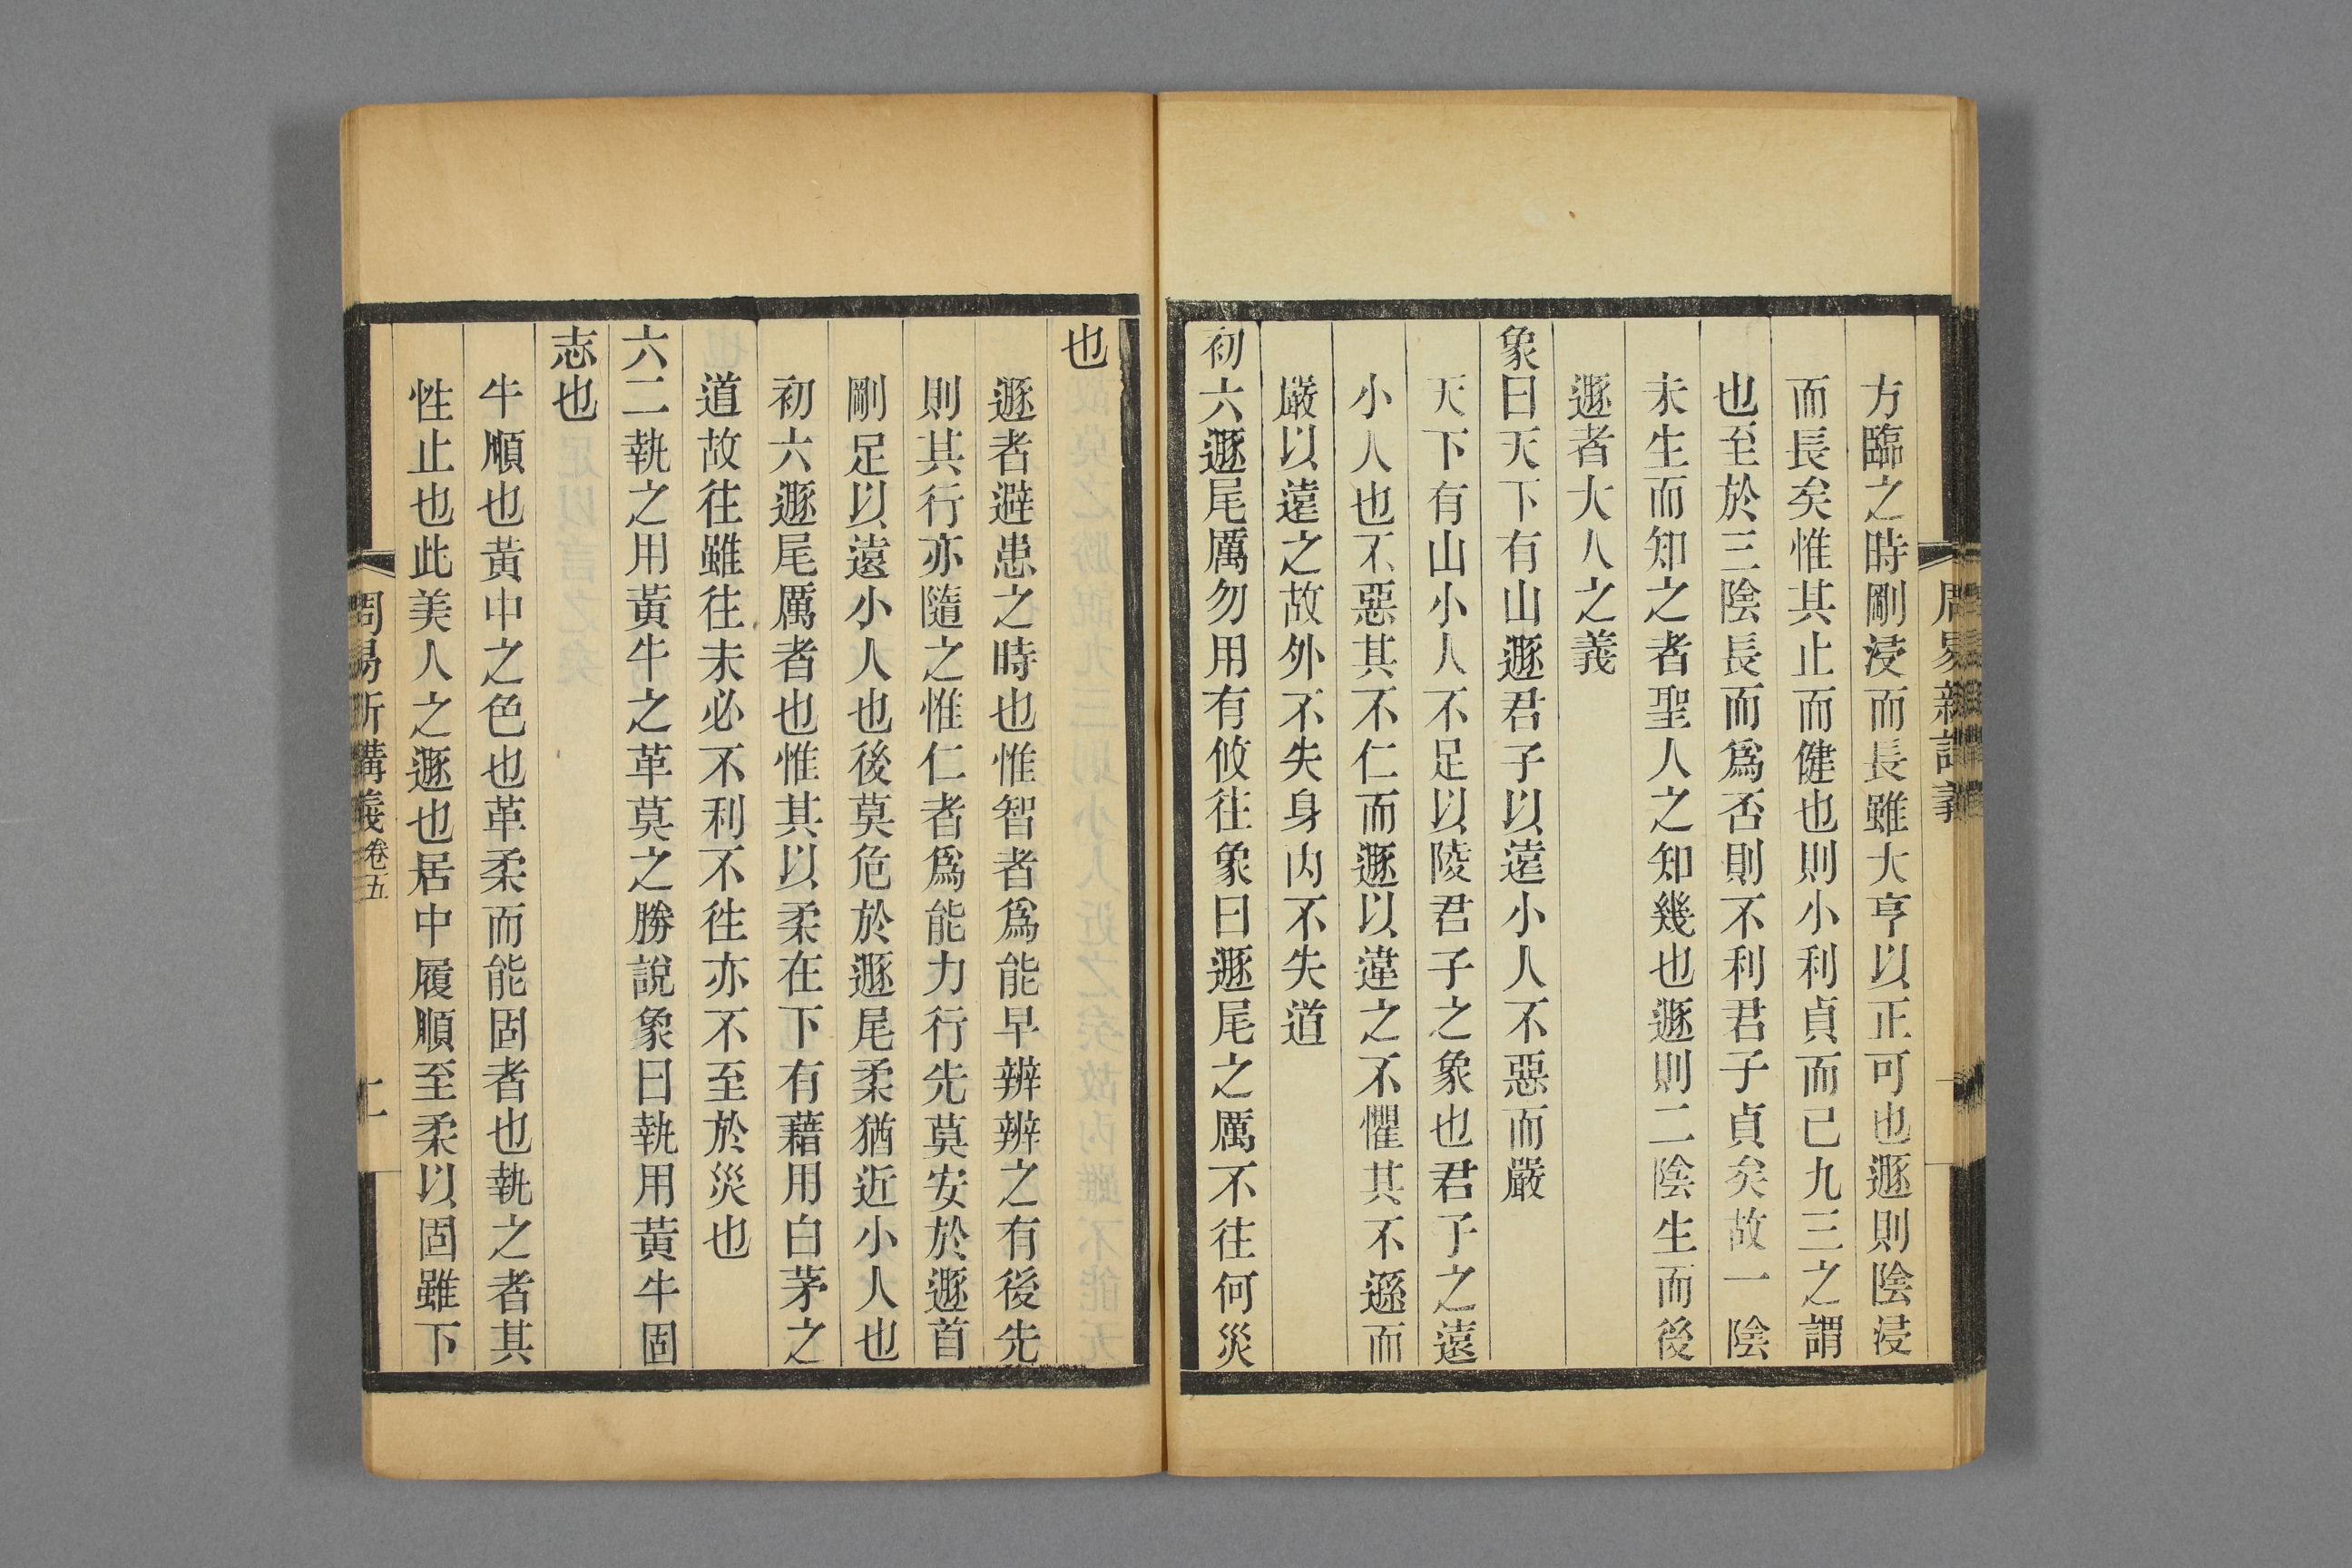 方臨之時剛浸而長雖大亨以正可也遯則陰浸
而長矣惟其止而健也則小利貞而已九三之謂
也至於三陰長而爲否則不利君子貞矣故一陰
未生而知之者聖人之知幾也遯則二陰生而後
遯者大人之義
象曰天下有山遯君子以遠小人不惡而嚴
天下有山小人不足以陵君子之象也君子之遠
小人也不惡其不仁而遯以違之不懼其不遜而
嚴以遠之故外不失身内不失道
初六遯尾厲勿用有攸往象曰遯尾之厲不往何災
也
遯者避患之時也惟智者爲能早辨辨之有後先
則其行亦隨之惟仁者爲能力行先莫安於遯首
剛足以遠小人也後莫危於遯尾柔猶近小人也
初六遯尾厲者也惟其以柔在下有藉用白茅之
道故往雖往未必不利不往亦不至於災也
六二執之用黃牛之革莫之勝說象曰執用黃牛固
志也
牛順也黃中之色也革柔而能固者也執之者其
性止也此美人之遯也居中履順至柔以固雖下
周易新講義卷五